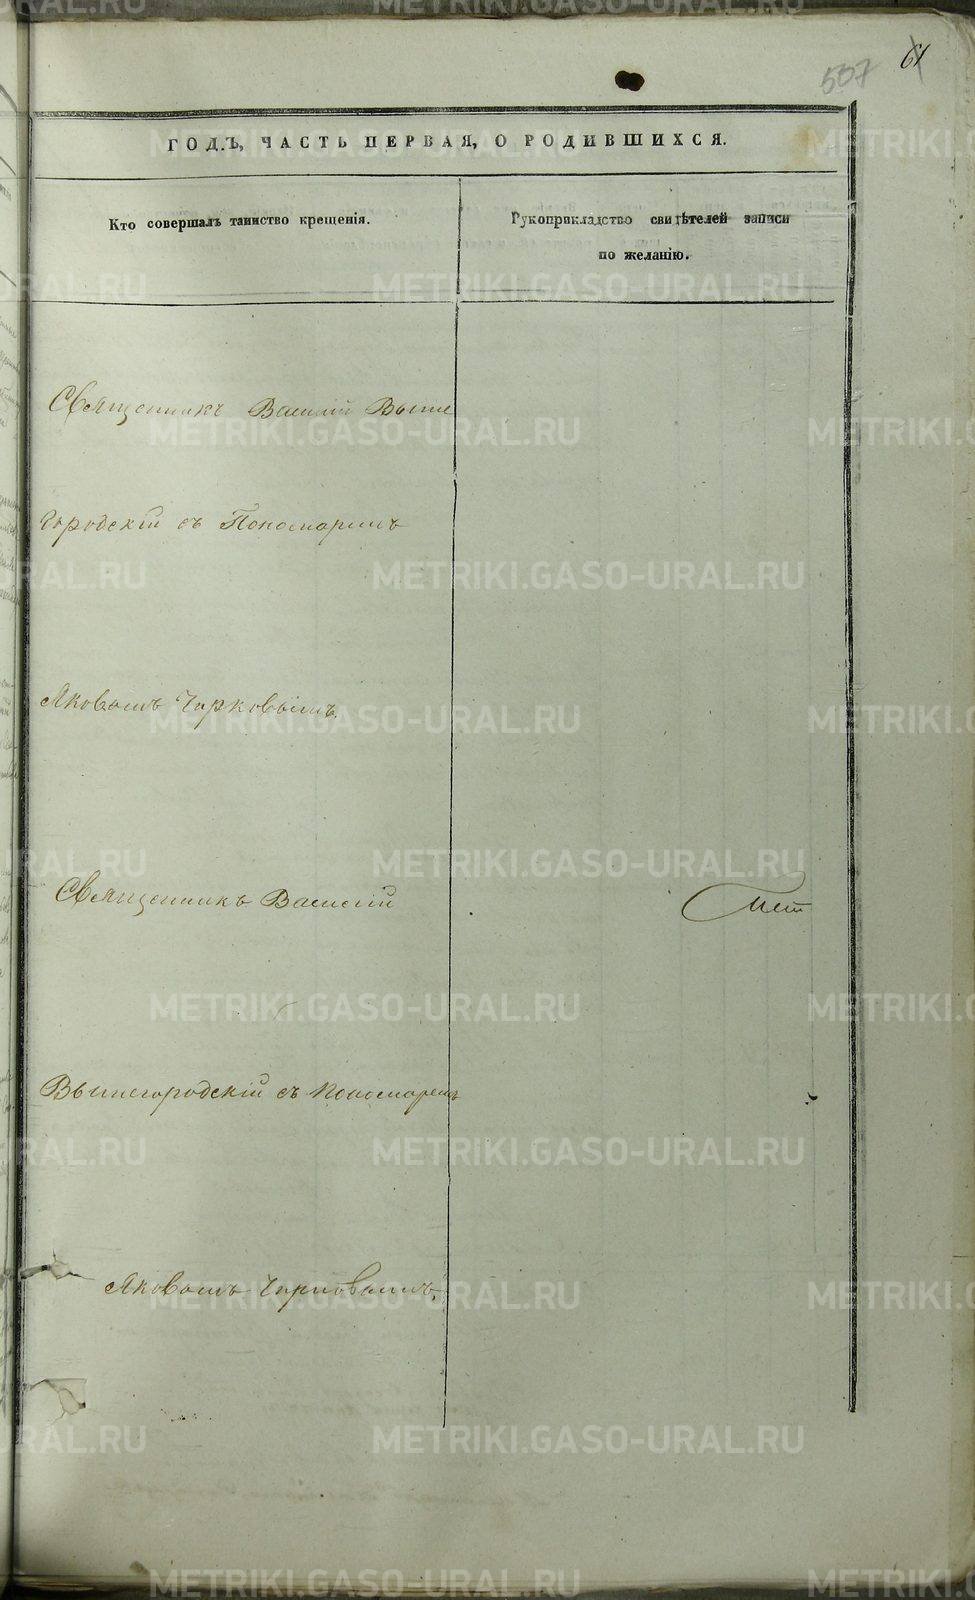 61
507
ГОДЪ, ЧАСТЬ ПЕРВАЯ, О РОДИВШИХСЯ.
Кто совершалъ таинство крещенія.
Рукоприкладство свидѣтелей записи
по желанію.
Священникъ Василій Выше
городскій съ Пономаремъ
Яковомъ
Священникъ Василій
Вышегородскій съ Пономаремъ
Яковомъ
METRIKI.GASO-URAL.RU